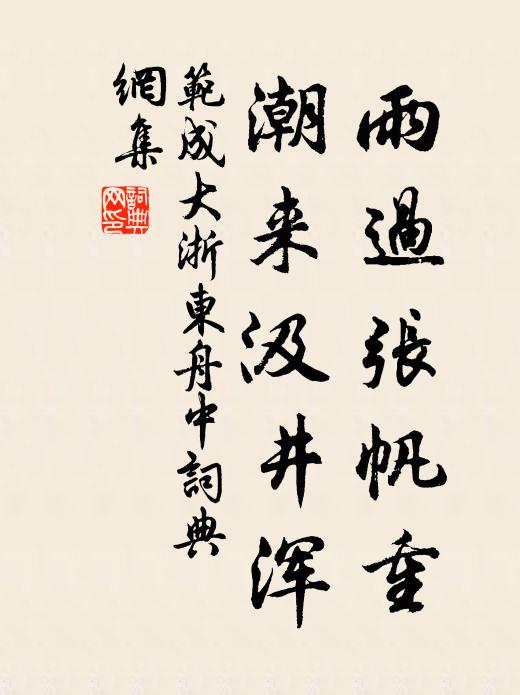 雨過張帆重
潮来汲井浑
範成大浙東舟中詞典
網集
詞典
网印